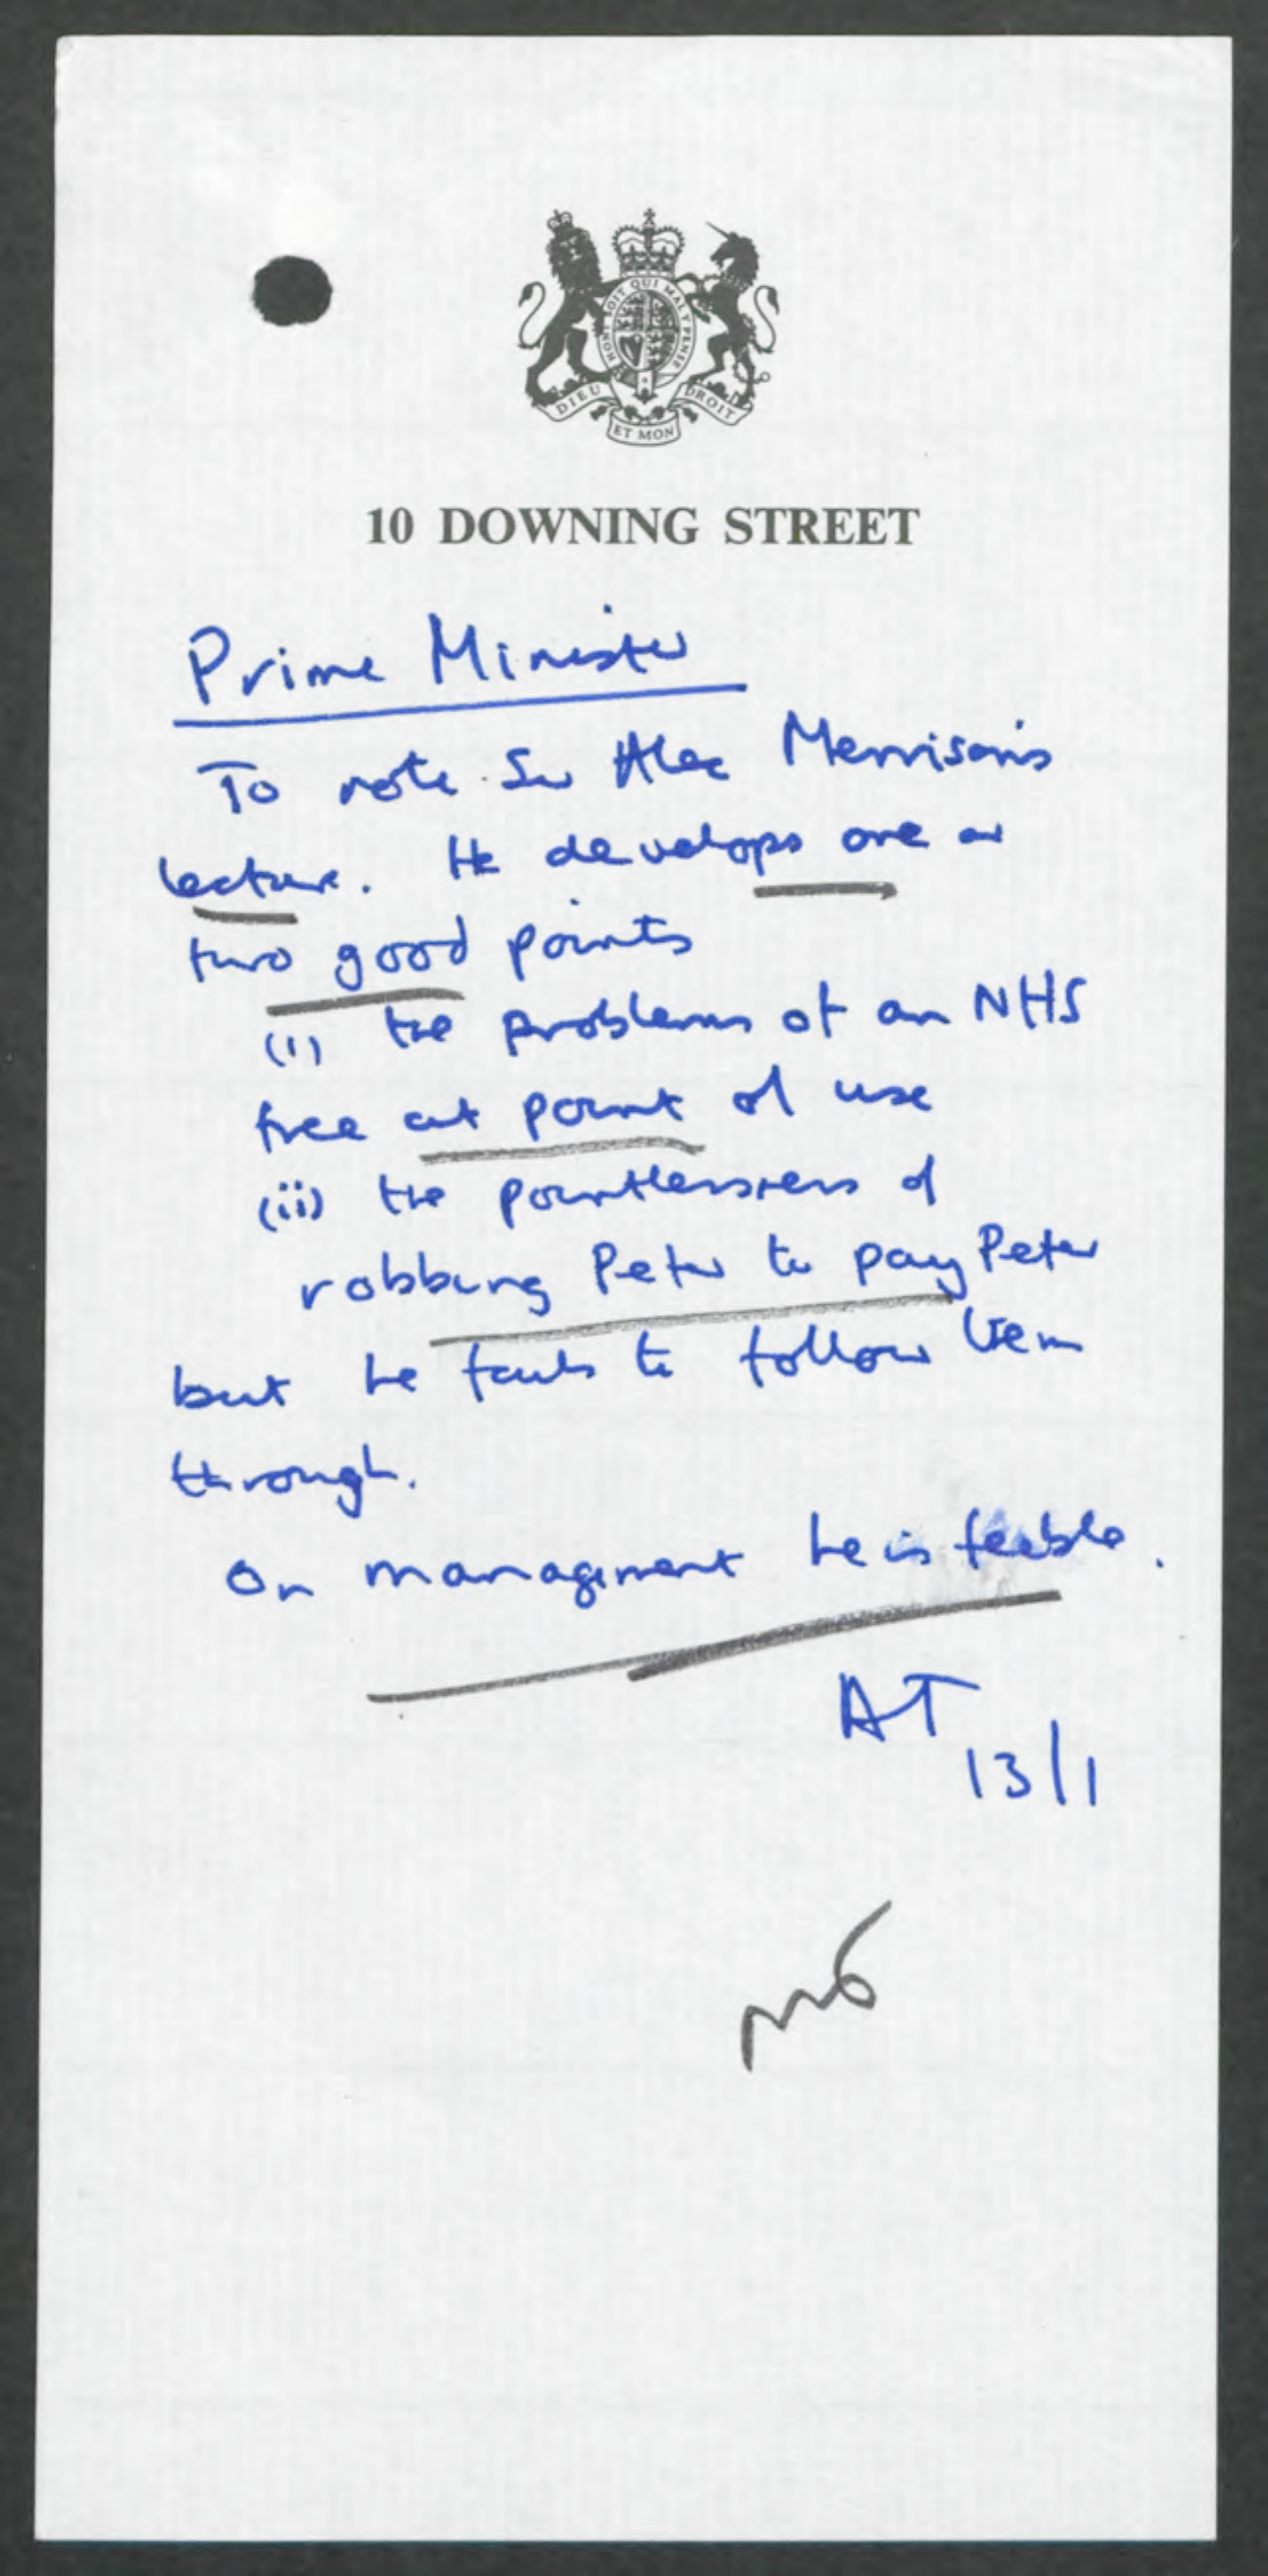 HONI SOIT QUI MAL Y PENSE
DIEU ET MON DROIT
10 DOWNING STREET
Prime Minister
To note Sir Alec Merrison's
lecture. He develops one or
two good points
(i) the problems of an NHS
free at point of use
(ii) the pointlessness of
robbing Peter to pay Peter
but he fails to follow them
through.
On management he is feeble.
AT
13/1